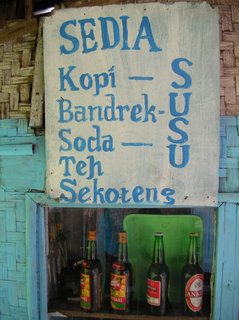 SEDIA
Kopi —
Bandrek-
Soda —
Teh
Sekoteng
SUSU